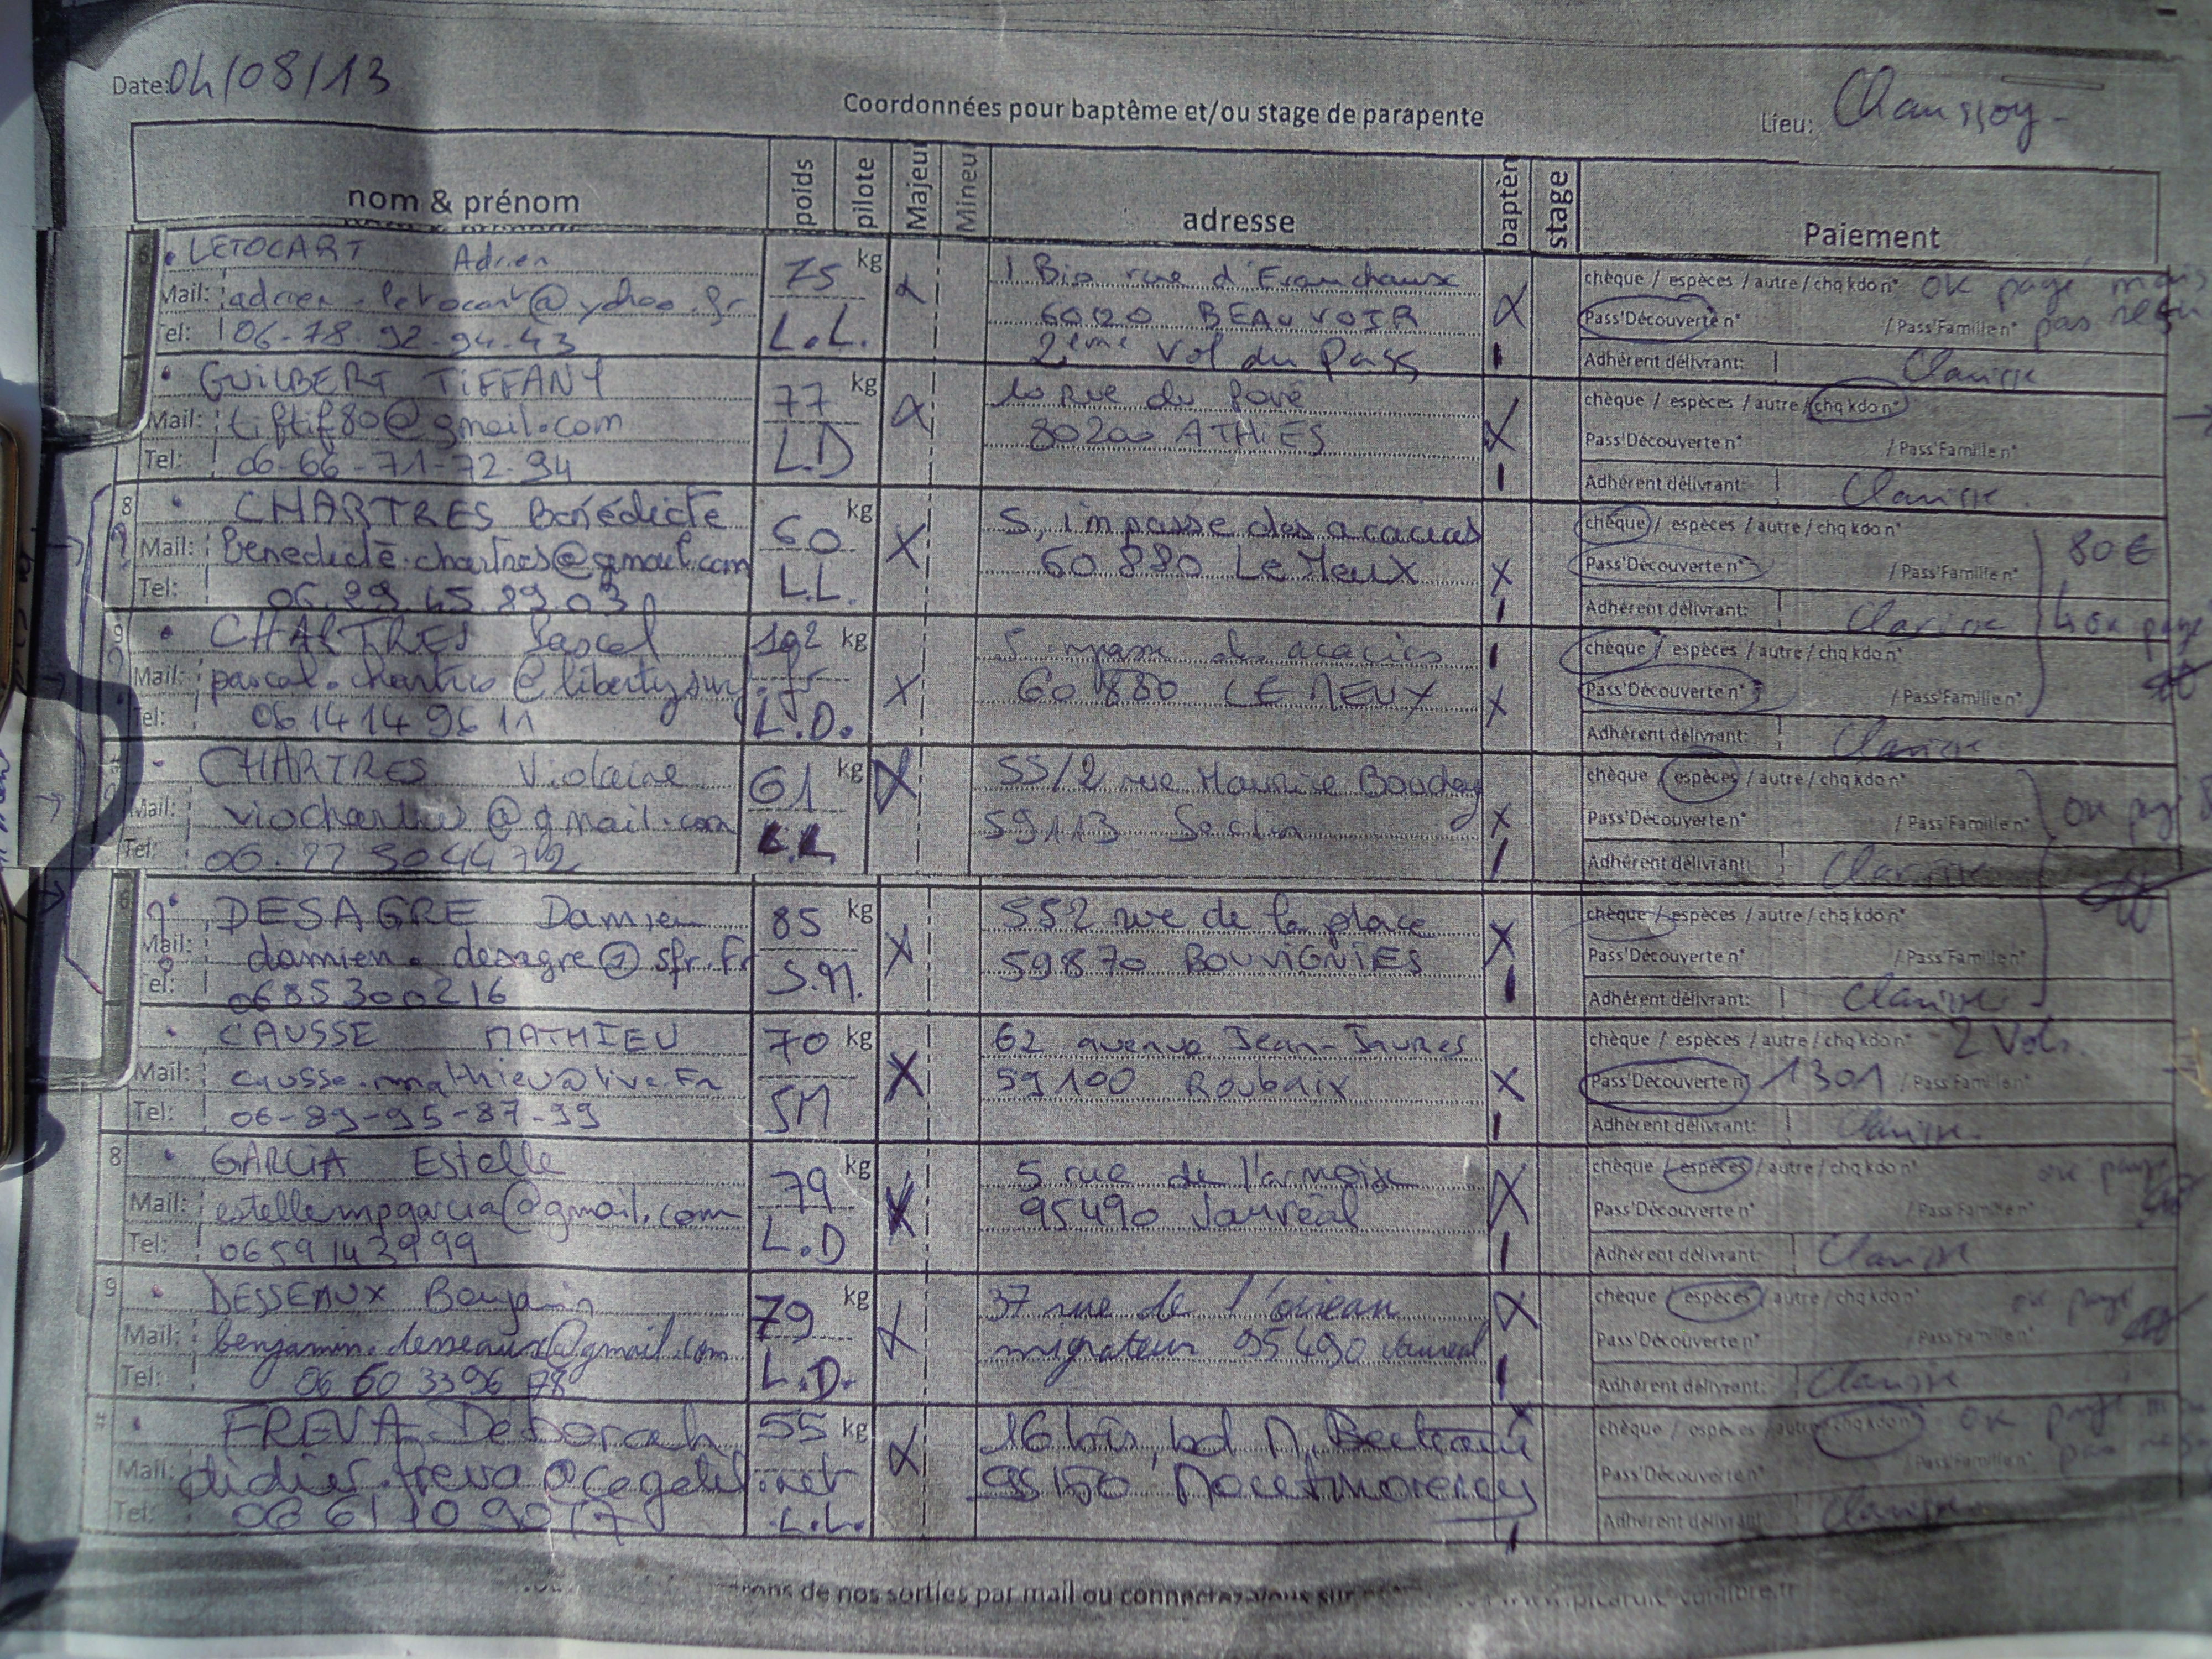 Date: 04/08/13
Coordonnées pour baptême et/ou stage de parapente
Lieu: Chaussoy-
nom & prénom poids pilote Majeur Mineu adresse baptêm stage Paiement
LETOCART Adrien 75 kg 1 Bis rue d' chèque / espèces / autre / chq kdo n° OK payé mais
Mail: adrien.letocart@yahoo.fr 60120 BEAUVOIR Pass'Découverte n° / Pass'Famille n° pas reçu
Tel: 06-78-92-94-43 L.L. 2ème Vol du Pass Adhérent délivrant: Clarisse
GUILBERT TIFFANY 77 kg 10 Rue du Pavé chèque / espèces / autre / chq kdo n°
Mail: tiftif80@gmail.com 80200 ATHIES Pass'Découverte n° / Pass'Famille n°
Tel: 06-66-71-72-94 L.D Adhérent délivrant: Clarisse
8 CHARTRES Bénédicte 60 kg 5, impasse des acacias chèque / espèces / autre / chq kdo n°
Mail: Benedicte.chartres@gmail.com X 60 880 Le Meux X Pass'Découverte n° / Pass'Famille n° 80€
Tel: 06.29.45.89.03 L.L. Adhérent délivrant: Clarisse
9 CHARTRES Pascal 102 kg 5 impasse des acacias chèque / espèces / autre / chq kdo n°
Mail: pascal.chartres@libertysurf.fr X 60 880 LE MEUX X Pass'Découverte n° / Pass'Famille n°
Tel: 06 14 14 96 11 L.D. Adhérent délivrant: Clarisse
CHARTRES Violaine 61 kg X 55/2 rue Maurice chèque / espèces / autre / chq kdo n°
Mail: viochartres@gmail.com 59113 Seclin X Pass'Découverte n° / Pass'Famille n° OK payé
Tel: 06.22 50 44 72 L.L Adhérent délivrant: Clarisse
DESAGRE Damien 85 kg 552 rue de la place chèque / espèces / autre / chq kdo n°
Mail: damien.desagre@sfr.Fr X 59870 BOUVIGNIES X Pass'Découverte n° / Pass'Famille n°
Tel: 0685300216 S.M. Adhérent délivrant: Clarisse
CAUSSE MATHIEU 70 kg 62 avenue Jean-Jaures chèque / espèces / autre / chq kdo n° 2 Vols.
Mail: causse.mathieu@live.Fr X 59100 Roubaix X Pass'Découverte n° 1301 / Pass'Famille n°
Tel: 06-89-95-87-99 SM Adhérent délivrant: Clarisse
8 GARCIA Estelle 79 kg 5 rue de l'armoise chèque / espèces / autre / chq kdo n° OK payé
Mail: estellempgarcia@gmail.com X 95490 Vauréal X Pass'Découverte n° / Pass'Famille n°
Tel: 0659143999 L.D Adhérent délivrant: Clarisse
9 DESSEAUX Benjamin 79 kg 37 rue de l'oiseau chèque / espèces / autre / chq kdo n° OK payé
Mail: benjamin.desseaux@gmail.com X migrateur 95490 Vauréal Pass'Découverte n° / Pass'Famille n°
Tel: 06 60 33 96 78 L.D. Adhérent délivrant: Clarisse
# FREVA Deborah 55 kg 16 bis, bd M. Berteaux chèque / espèces / autre / chq kdo n° OK payé
Mail: didier.freva@cegetel.net 95150 Pass'Découverte n° / Pass'Famille n°
Tel: 06 61 10 90 17 L.L. Adhérent délivrant: Clarisse
de nos sorties par mail ou connectez-vous sur